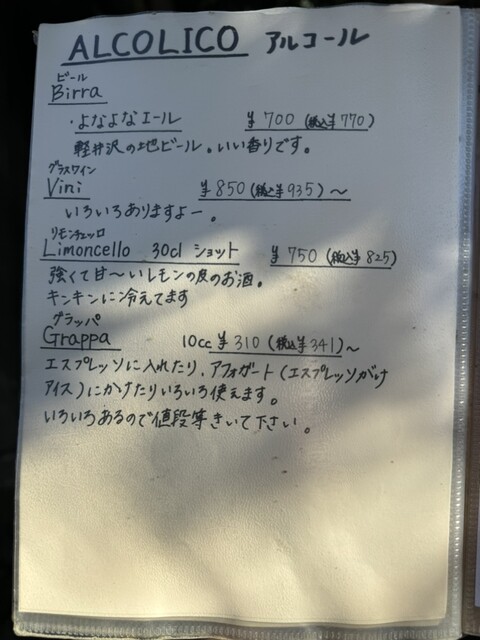 ALCOLICO アルコール
ビール
Birra
・よなよなエール ¥700(税込¥770)
軽井沢の地ビール。いい香りです。
グラスワイン
Vini ¥850(税込¥935)〜
いろいろありますよー。
リモンチェッロ
Limoncello 30cl ショット ¥750(税込¥825)
強くて甘〜いレモンの皮のお酒。
キンキンに冷えてます
グラッパ
Grappa 10cc ¥310(税込¥341)〜
エスプレッソに入れたり、アフォガート(エスプレッソがけ
アイス)にかけたりいろいろ使えます。
いろいろあるので値段等きいて下さい。